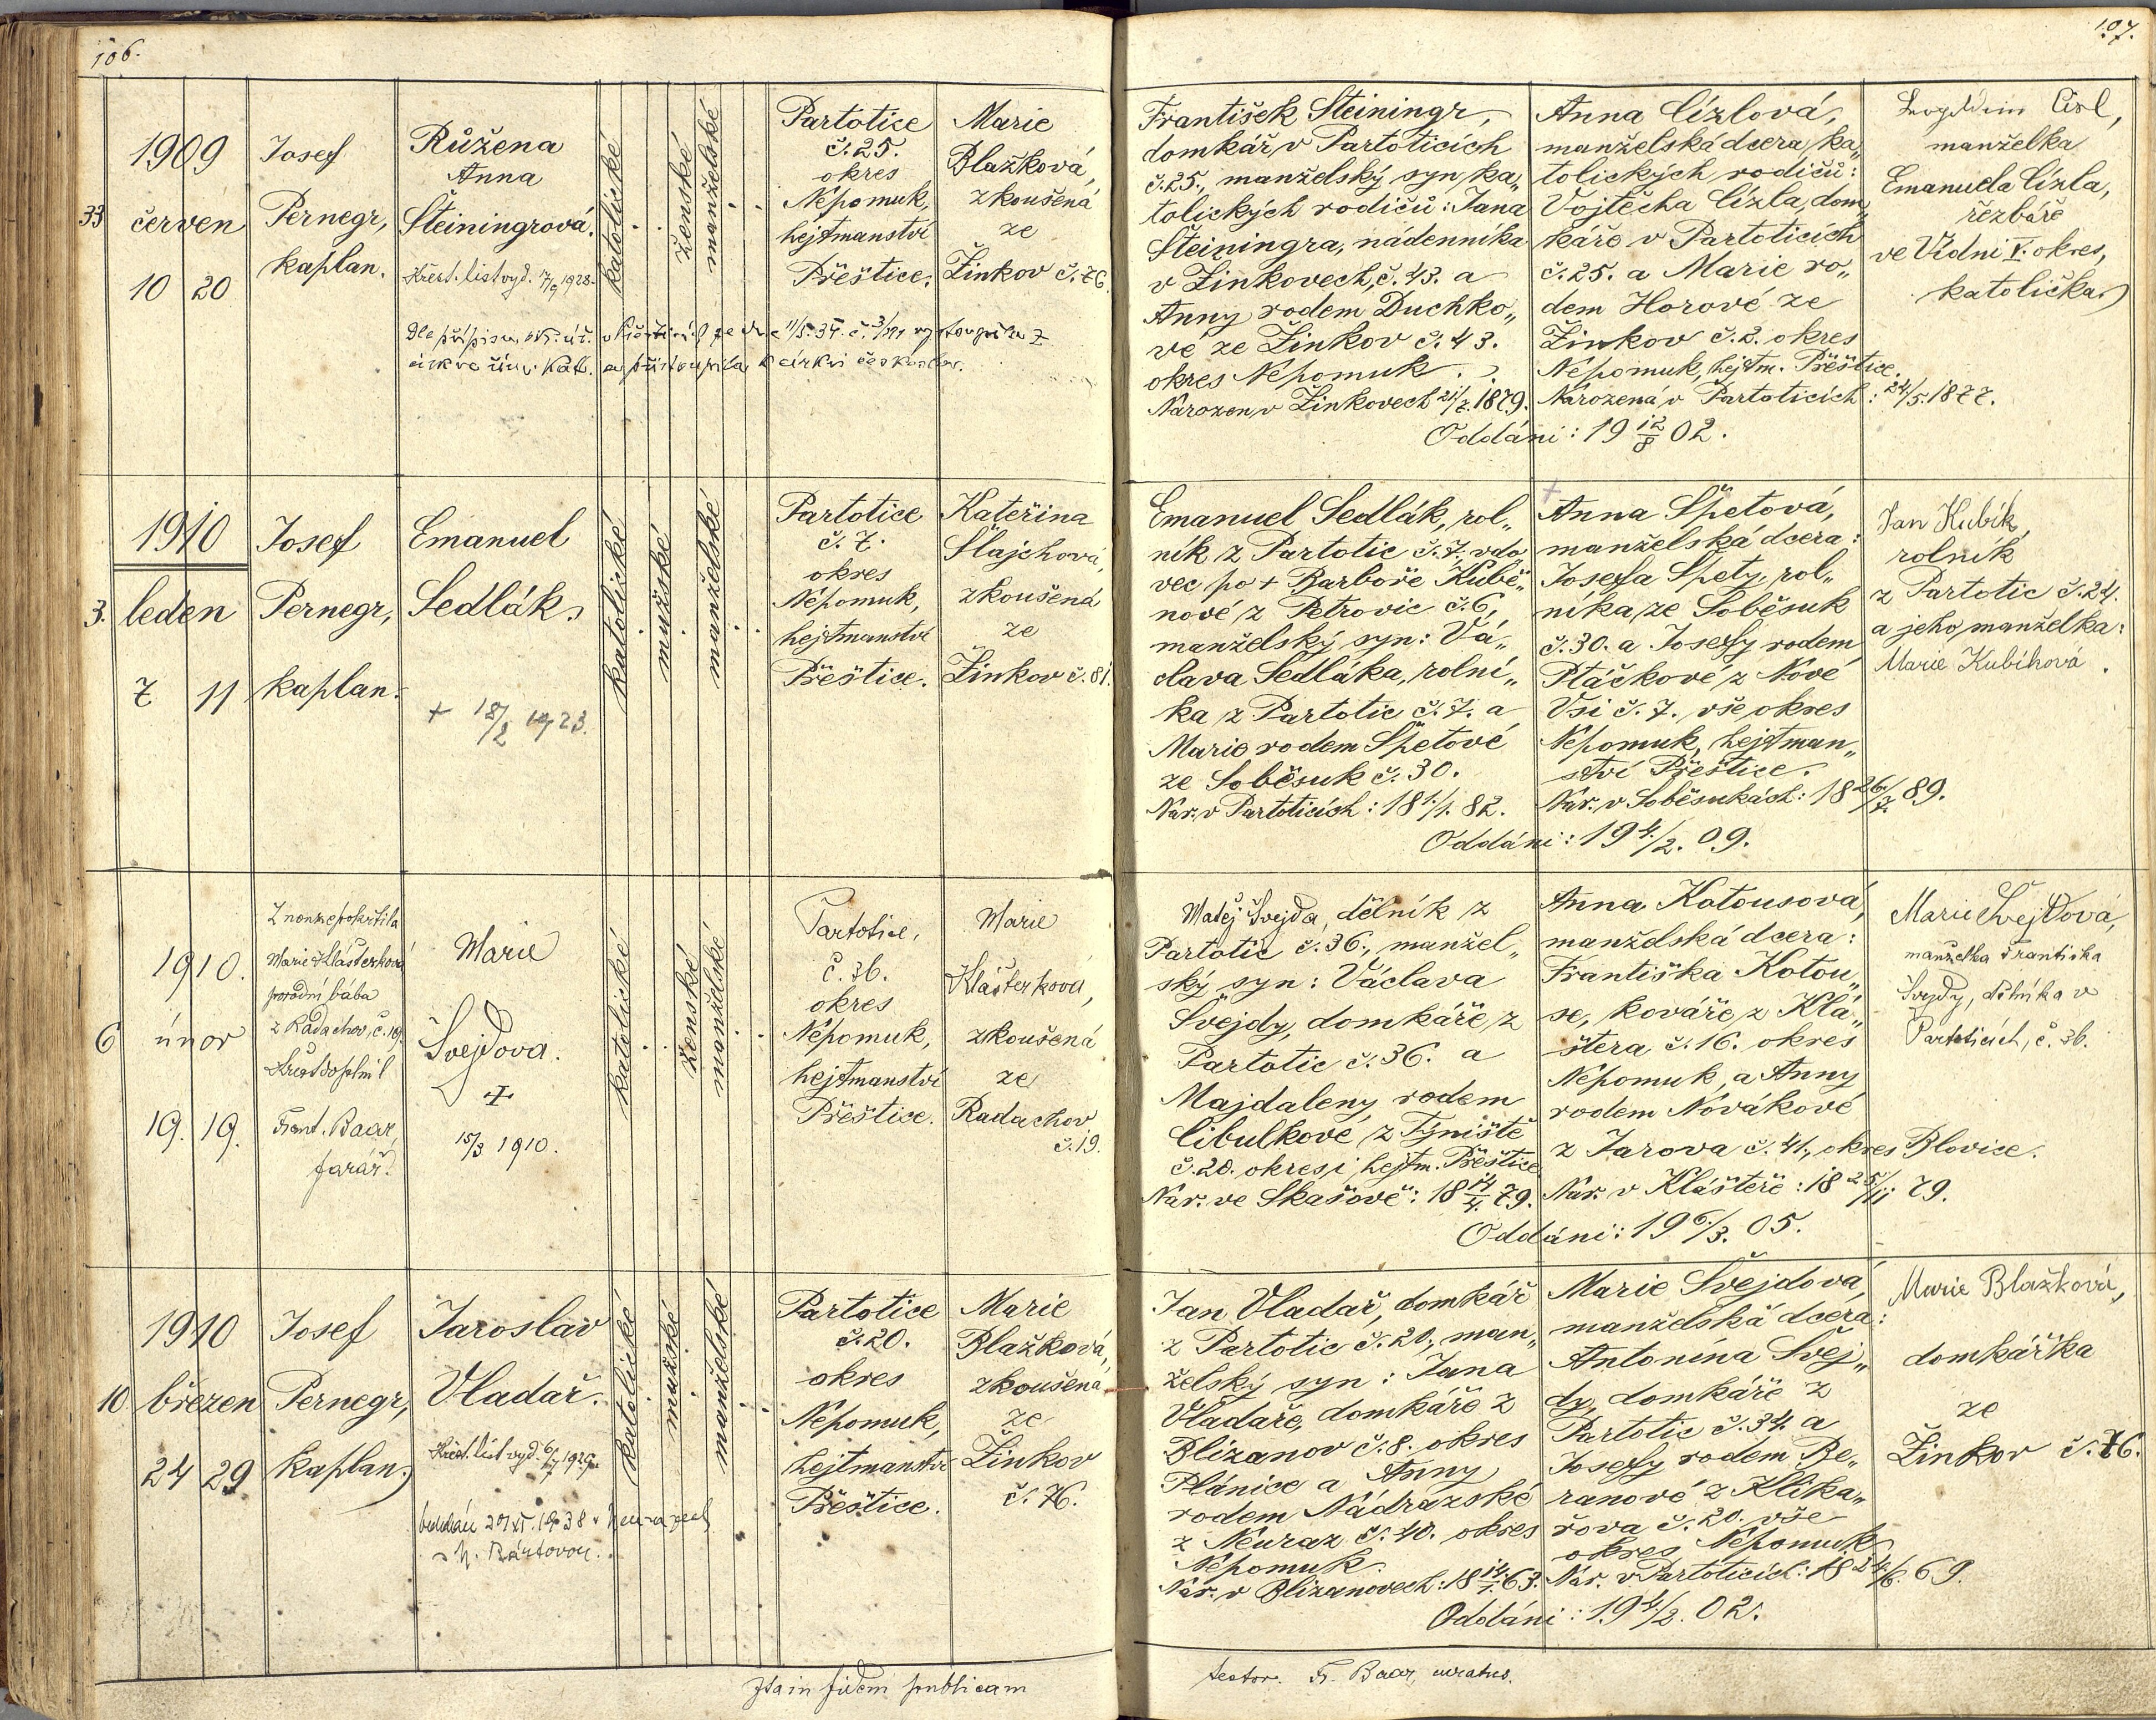 106.
107.
33
1909
červen
10 20
Josef
Pernegr,
kaplan.
Růžena
Anna
Šteiningrová.
Křest. list vyd. 17/9 1928.
katolické
ženské
manželské
Partotice
č. 25.
okres
Nepomuk,
hejtmanství
Přeštice.
Marie
Blažková,
zkoušená
ze
Žinkov č. 76.
církve řím. kat. a přistoupila k církvi českoslov.
František Šteiningr,
domkář v Partoticích
č. 25., manželský syn ka„
tolických rodičů: Jana
Šteiningra, nádenníka
v Žinkovech, č. 43. a
Anny rodem Duchko„
vé ze Žinkov č. 43.
okres Nepomuk.
Narozen v Žinkovech 21/7. 1879.
Anna Cízlová,
manželská dcera ka„
tolických rodičů:
Vojtěcha Cízla, dom„
káře v Partoticích
č. 25. a Marie ro„
dem Horové ze
Žinkov č. 2. okres
Nepomuk, hejtm. Přeštice.
Narozená v Partoticích: 24/5. 1877.
Oddáni: 19 12/8 02.
Císl,
manželka
Emanuela Cízla,
řezbáře
ve Vídni V. okres,
katolička.
3.
1910
leden
7 11
Josef
Pernegr,
kaplan.
Emanuel
Sedlák.
+ 18/2 1923.
katolické
mužské
manželské
Partotice
č. 7.
okres
Nepomuk,
hejtmanství
Přeštice.
Kateřina
Šlajchová,
zkoušená
ze
Žinkov č. 81.
Emanuel Sedlák, rol„
ník z Partotic č. 7. vdo
vec po + Barboře Kubě„
nové z Petrovic č. 6,
manželský syn: Vá„
clava Sedláka, rolní„
ka z Partotic č. 7. a
Marie rodem Špetové
ze Soběsuk č. 30.
Nar. v Partoticích: 18 1./1. 82.
Anna Špetová,
manželská dcera:
Josefa Špety, rol„
níka ze Soběsuk
č. 30. a Josefy rodem
Ptáčkové z Nové
Vsi č. 7. vše okres
Nepomuk, hejtman„
ství Přeštice.
Nar. v Soběsukách: 18 26./7. 89.
Oddáni: 19 4./2. 09.
Jan Kubík,
rolník
z Partotic č. 24.
a jeho manželka:
Marie Kubíková.
6
1910.
únor
19. 19.
Z nouze pokřtila
Marie Klášterková
porodní bába
z Radachov, č. 19.
Křest doplnil
Frant. Baar,
farář.
Marie
Švejdova.
+
15/3 1910.
katolické
ženské
manželské
Partotice,
č. 36.
okres
Nepomuk,
hejtmanství
Přeštice.
Marie
Klášterková,
zkoušená
ze
Radachov
č. 19.
Matěj Švejda, dělník z
Partotic č. 36., manžel„
ský syn: Václava
Švejdy, domkáře z
Partotic č. 36. a
Majdaleny rodem
Cibulkové z Týniště
č. 20. okres i hejtm. Přeštice
Nar. ve Skašově: 18 14/4. 79.
Anna Kotousová,
manželská dcera:
Františka Kotou„
se, kováře z Klá„
štera č. 16. okres
Nepomuk, a Anny
rodem Novákové
z Jarova č. 41., okres Blovice.
Nar. v Klášteře: 18 25/11 79.
Oddáni: 19 6./3. 05.
Marie Švejdová,
manželka Františka
Švejdy, dělníka v
Partoticích, č. 36.
10
1910
březen
24 29
Josef
Pernegr,
kaplan.
Jaroslav
Vladař.
Křest. list vyd. 6/7 1929.
s N. Bártovou.
katolické
mužské
manželské
Partotice
č. 20.
okres
Nepomuk,
hejtmanství
Přeštice.
Marie
Blažková,
zkoušená
ze
Žinkov
č. 76.
Jan Vladař, domkář
z Partotic č. 20., man„
želský syn: Jana
Vladaře, domkáře z
Blizanov č. 8. okres
Plánice a Anny
rodem Nádrazské
z Neuraz č. 40. okres
Nepomuk.
Nar. v Blizanovech: 18 14./1. 63.
Marie Švejdová,
manželská dcera:
Antonína Švej„
dy, domkáře z
Partotic č. 34. a
Josefy rodem Be„
ranové z Klika„
řova č. 20. vše
okres Nepomuk
Nar. v Partoticích: 18 24./6. 69.
Oddáni: 19 4./2. 02.
Marie Blažková,
domkářka
ze
Žinkov č. 76.
Ita in fidem publicam
testor. Fr. Baar, curatus.